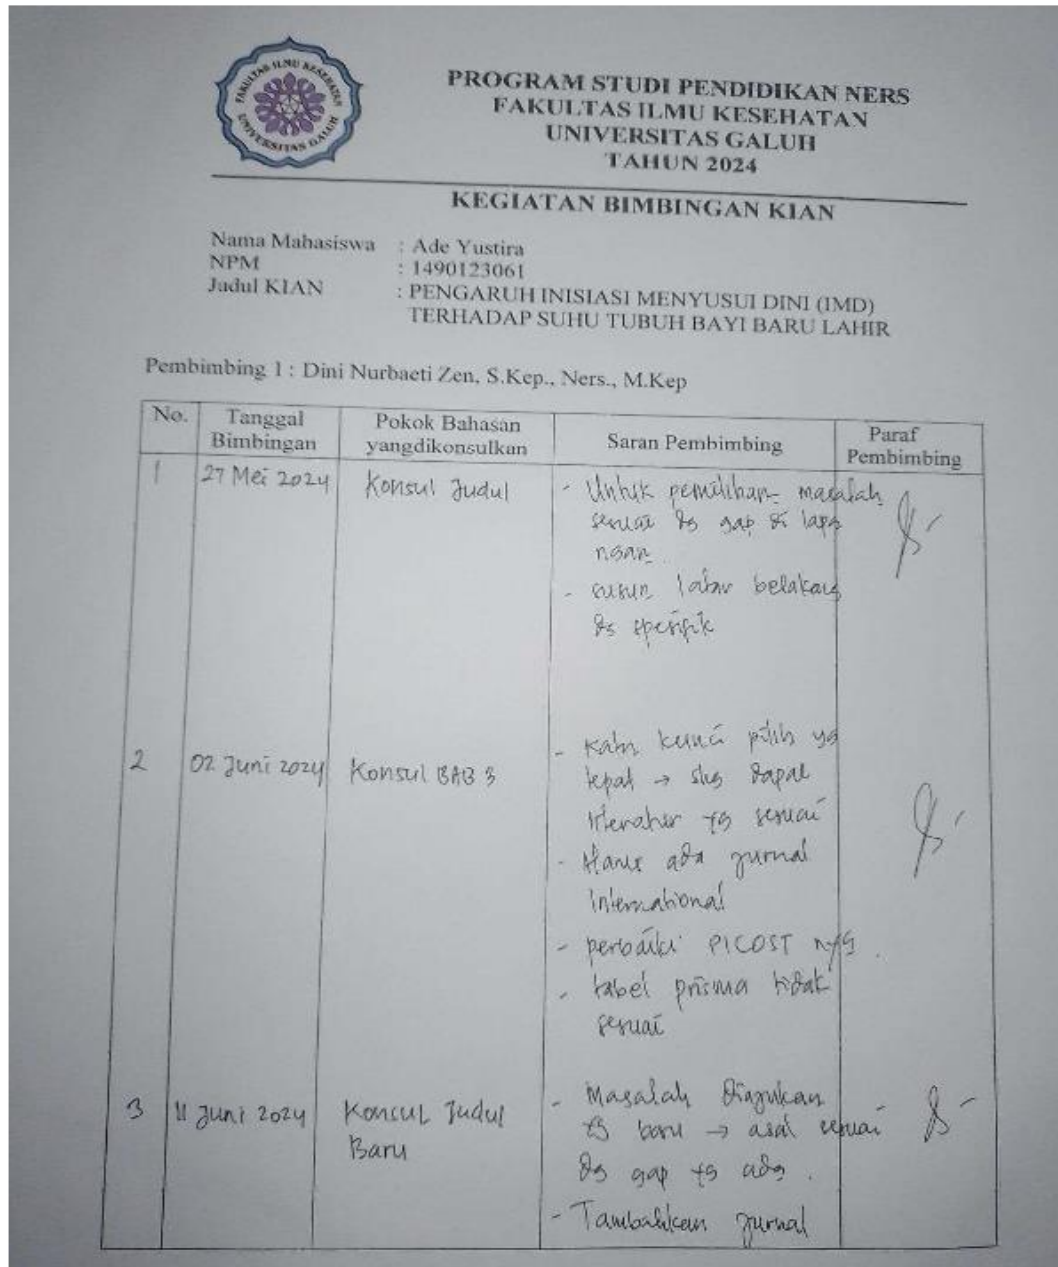 FAKULTAS ILMU KESEHATAN
UNIVERSITAS GALUH
PROGRAM STUDI PENDIDIKAN NERS
FAKULTAS ILMU KESEHATAN
UNIVERSITAS GALUH
TAHUN 2024
KEGIATAN BIMBINGAN KIAN
Nama Mahasiswa : Ade Yustira
NPM : 1490123061
Judul KIAN : PENGARUH INISIASI MENYUSUI DINI (IMD)
TERHADAP SUHU TUBUH BAYI BARU LAHIR
Pembimbing 1 : Dini Nurbaeti Zen, S.Kep., Ners., M.Kep
No. Tanggal Bimbingan Pokok Bahasan yangdikonsulkan Saran Pembimbing Paraf Pembimbing
1 27 Mei 2024 Konsul Judul - Untuk pemilihan masalah
sesuai dg gap di lapa
ngan.
- susun latar belakang
dg spesifik
2 02 Juni 2024 Konsul BAB 3 - Kata kunci pilih yg
tepat → shg dapat
literatur yg sesuai
- Harus ada jurnal
International
- perbaiki PICOST
- tabel prisma tidak
sesuai
3 11 Juni 2024 Konsul Judul - Masalah diajukan
Baru yg baru → asal sesuai
dg gap yg ada.
- Tambahkan jurnal